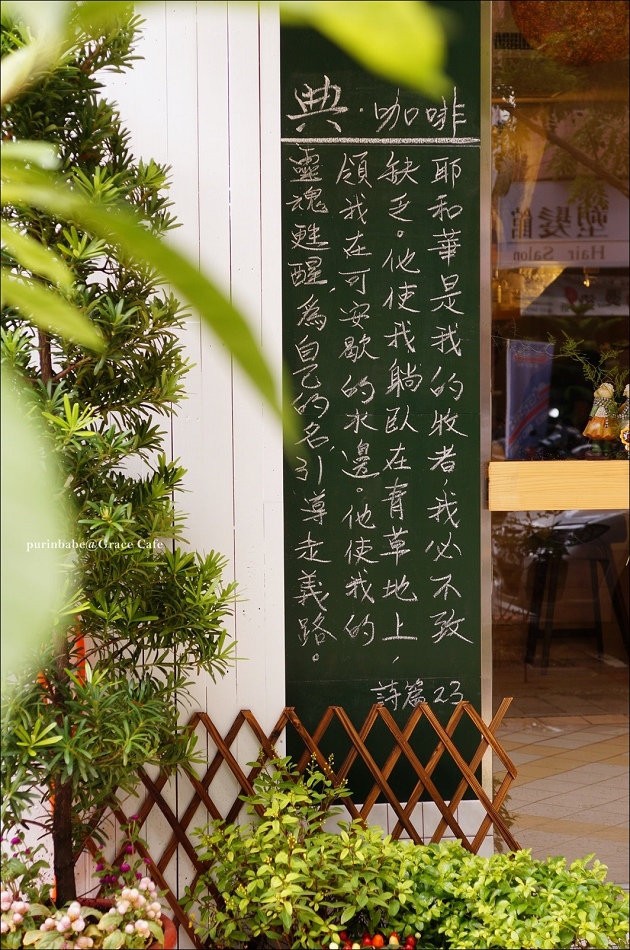 典·咖啡
耶和華是我的牧者,我必不致
缺乏。他使我躺臥在青草地上,
領我在可安歇的水邊。他使我的
靈魂甦醒,為自己的名引導走義路。
詩篇23
塑髮館
Hair Salon
purinbabe@Grace Cafe